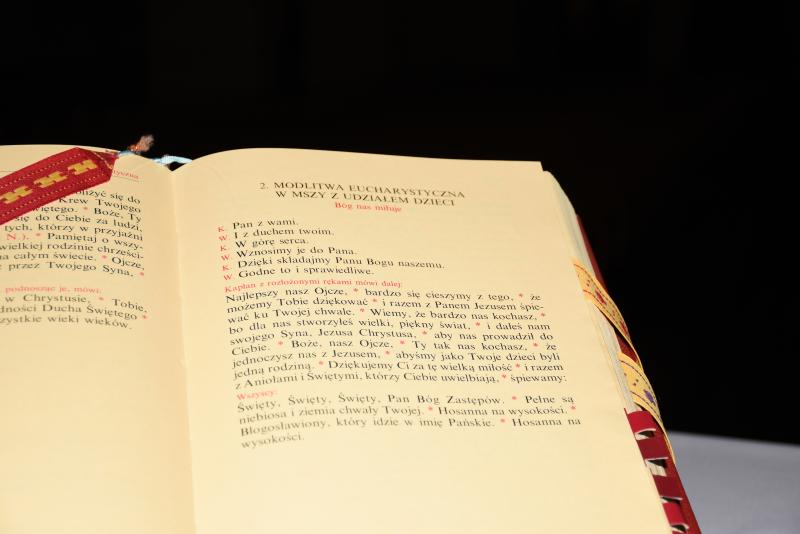 tyczna
bliżyć się do
Krew Twojego
Świętego. * Boże, Ty
się do Ciebie za ludzi,
tych, którzy w przyjaźni
N.). * Pamiętaj o wszy-
wielkiej rodzinie chrześci-
na całym świecie. * Ojcze,
przez Twojego Syna, *
podnosząc je, mówi:
w Chrystusie, * Tobie,
jedności Ducha Świętego *
wszystkie wieki wieków.
2. MODLITWA EUCHARYSTYCZNA
W MSZY Z UDZIAŁEM DZIECI
Bóg nas miłuje
K. Pan z wami.
W. I z duchem twoim.
K. W górę serca.
W. Wznosimy je do Pana.
K. Dzięki składajmy Panu Bogu naszemu.
W. Godne to i sprawiedliwe.
Kapłan z rozłożonymi rękami mówi dalej:
Najlepszy nasz Ojcze, * bardzo się cieszymy z tego, * że
możemy Tobie dziękować * i razem z Panem Jezusem śpie-
wać ku Twojej chwale. * Wiemy, że bardzo nas kochasz, *
bo dla nas stworzyłeś wielki, piękny świat, * i dałeś nam
swojego Syna, Jezusa Chrystusa, * aby nas prowadził do
Ciebie. * Boże, nasz Ojcze, * Ty tak nas kochasz, * że
jednoczysz nas z Jezusem, * abyśmy jako Twoje dzieci byli
jedną rodziną. * Dziękujemy Ci za tę wielką miłość * i razem
z Aniołami i Świętymi, którzy Ciebie uwielbiają, * śpiewamy:
Wszyscy:
Święty, Święty, Święty, Pan Bóg Zastępów. * Pełne są
niebiosa i ziemia chwały Twojej. * Hosanna na wysokości. *
Błogosławiony, który idzie w imię Pańskie. * Hosanna na
wysokości.